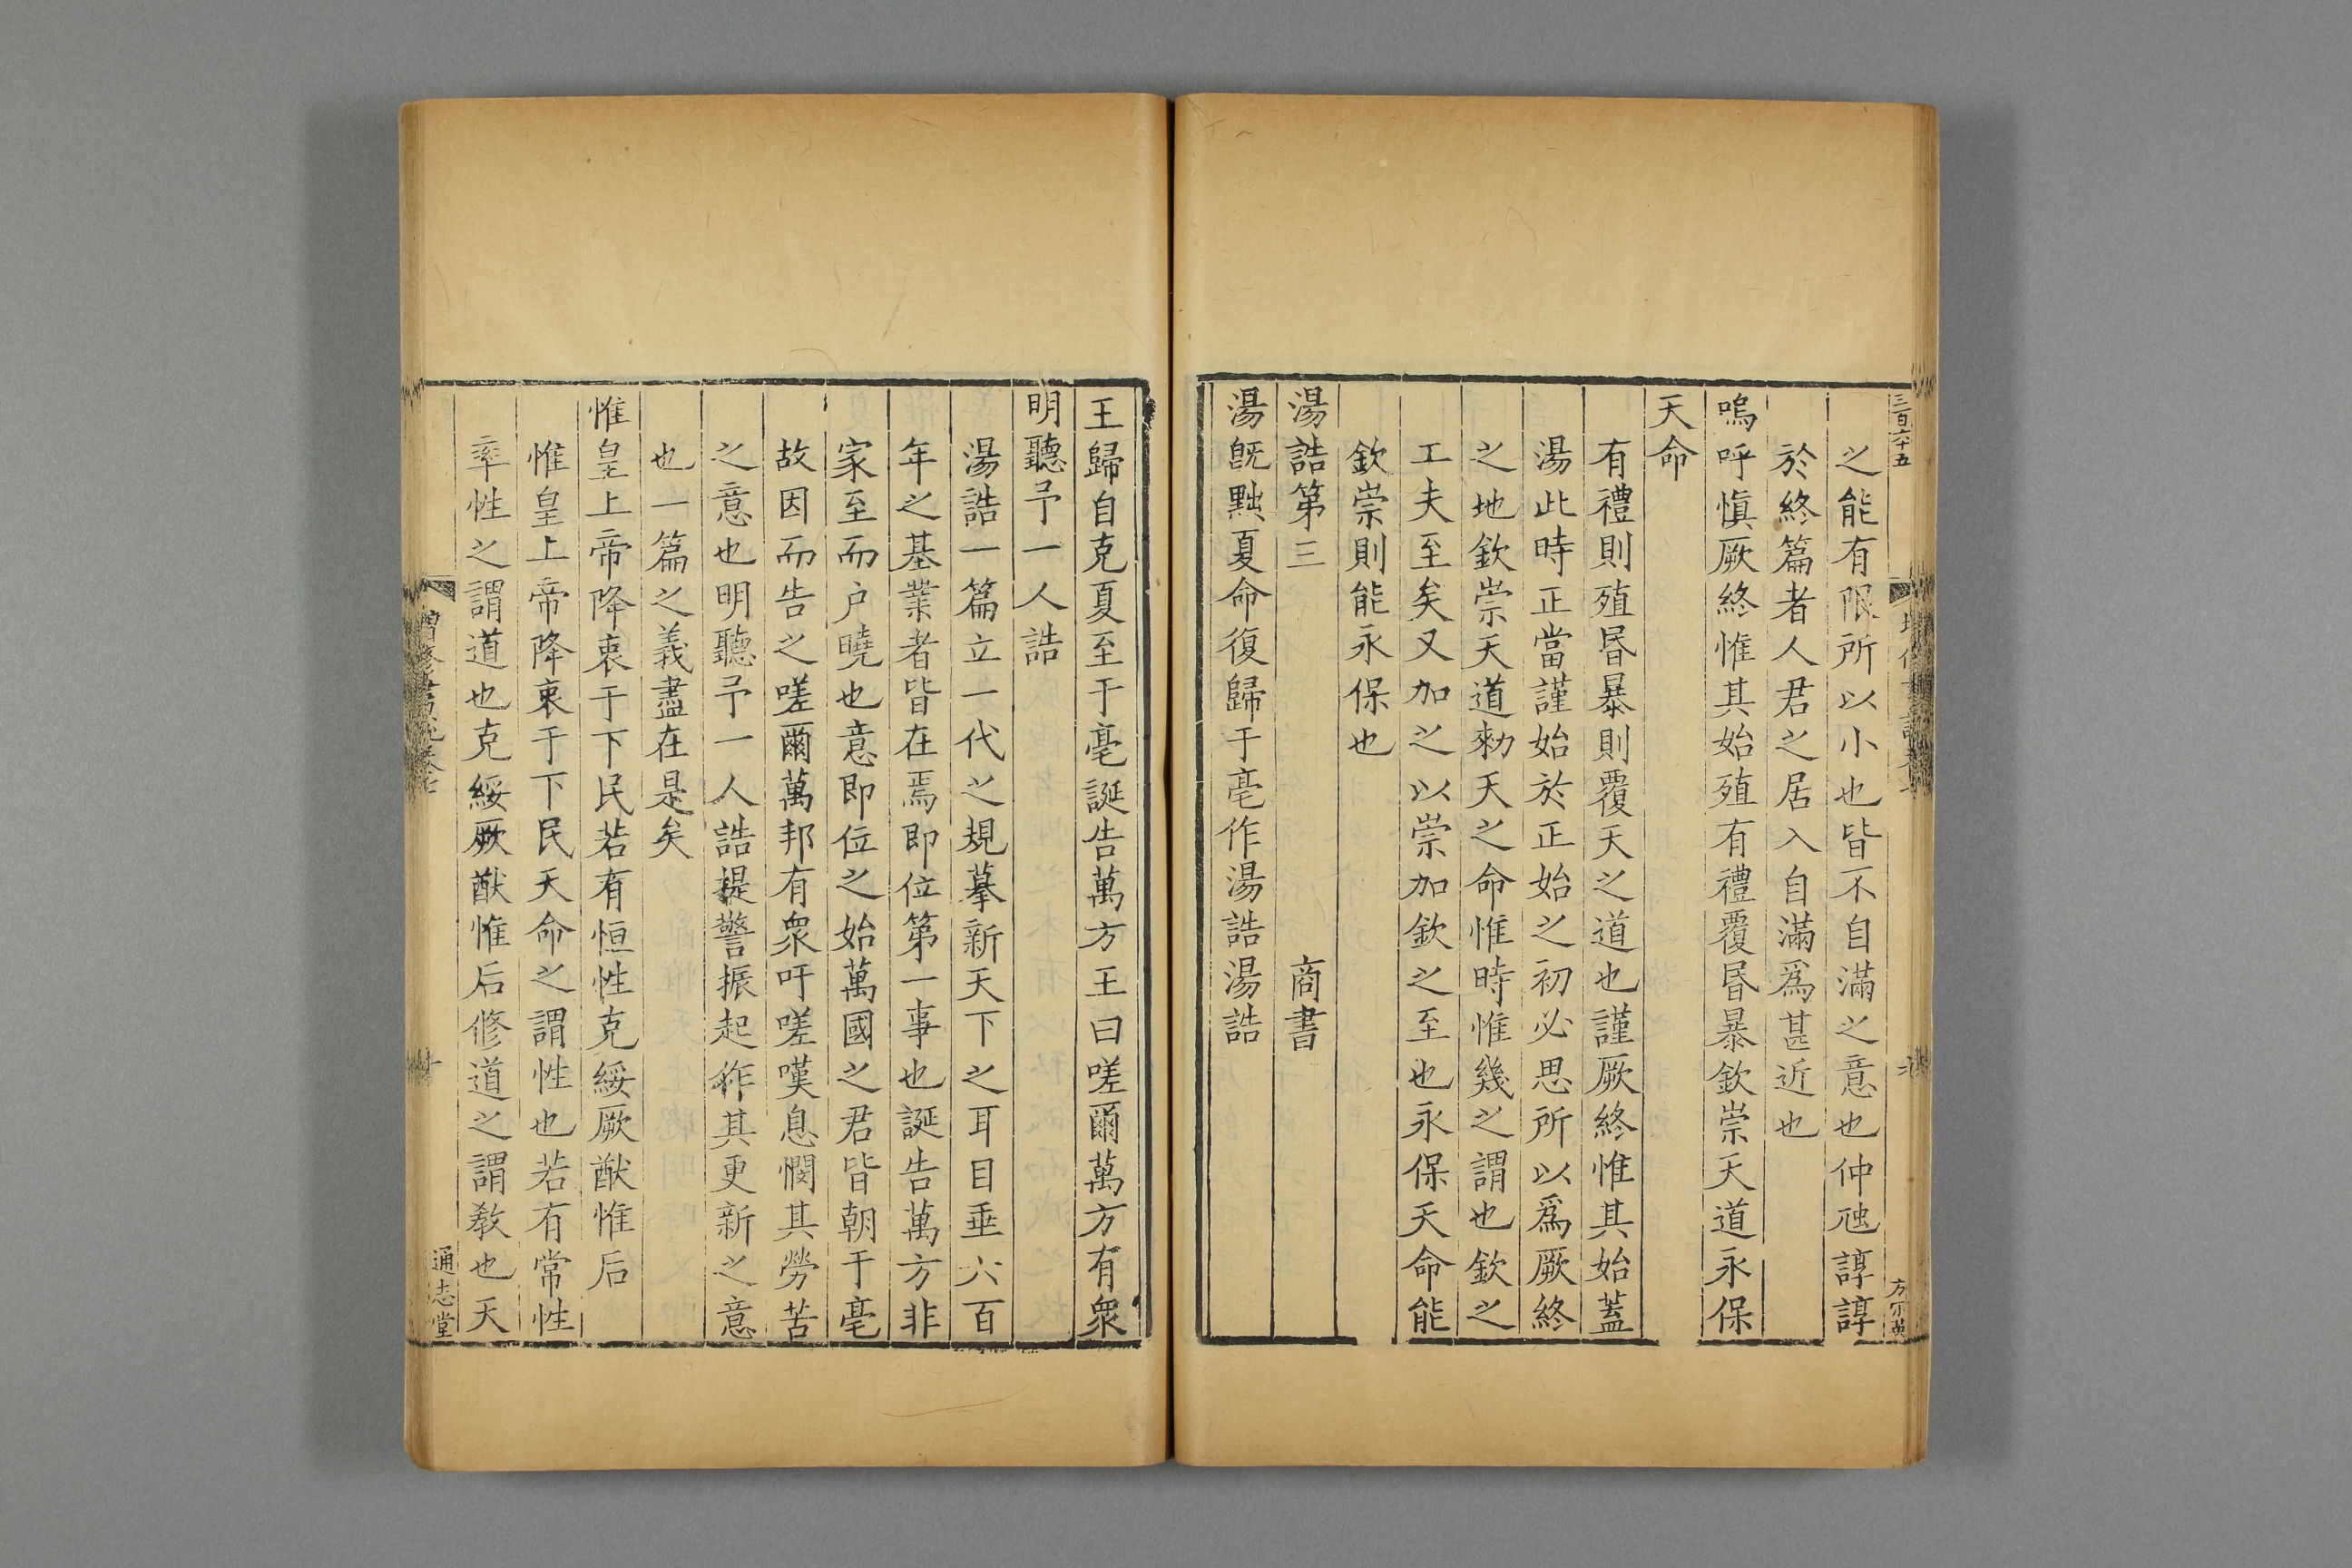 三百六十五
之能有限所以小也皆不自滿之意也仲虺諄諄
於終篇者人君之居入自滿爲甚近也
嗚呼愼厥終惟其始殖有禮覆昬暴欽崇天道永保
天命
有禮則殖昬暴則覆天之道也謹厥終惟其始蓋
湯此時正當謹始於正始之初必思所以爲厥終
之地欽崇天道勑天之命惟時惟幾之謂也欽之
工夫至矣又加之以崇加欽之至也永保天命能
欽崇則能永保也
湯誥第三 商書
湯旣黜夏命復歸于亳作湯誥湯誥
王歸自克夏至于亳誕告萬方王曰嗟爾萬方有衆
明聽予一人誥
湯誥一篇立一代之規摹新天下之耳目垂六百
年之基業者皆在焉卽位第一事也誕告萬方非
家至而户曉也意卽位之始萬國之君皆朝于亳
故因而告之嗟爾萬邦有衆吁嗟嘆息憫其勞苦
之意也明聽予一人誥提警振起作其更新之意
也一篇之義盡在是矣
惟皇上帝降衷于下民若有恒性克綏厥猷惟后
惟皇上帝降衷于下民天命之謂性也若有常性
率性之謂道也克綏厥猷惟后修道之謂敎也天
增修書說卷七
十
通志堂